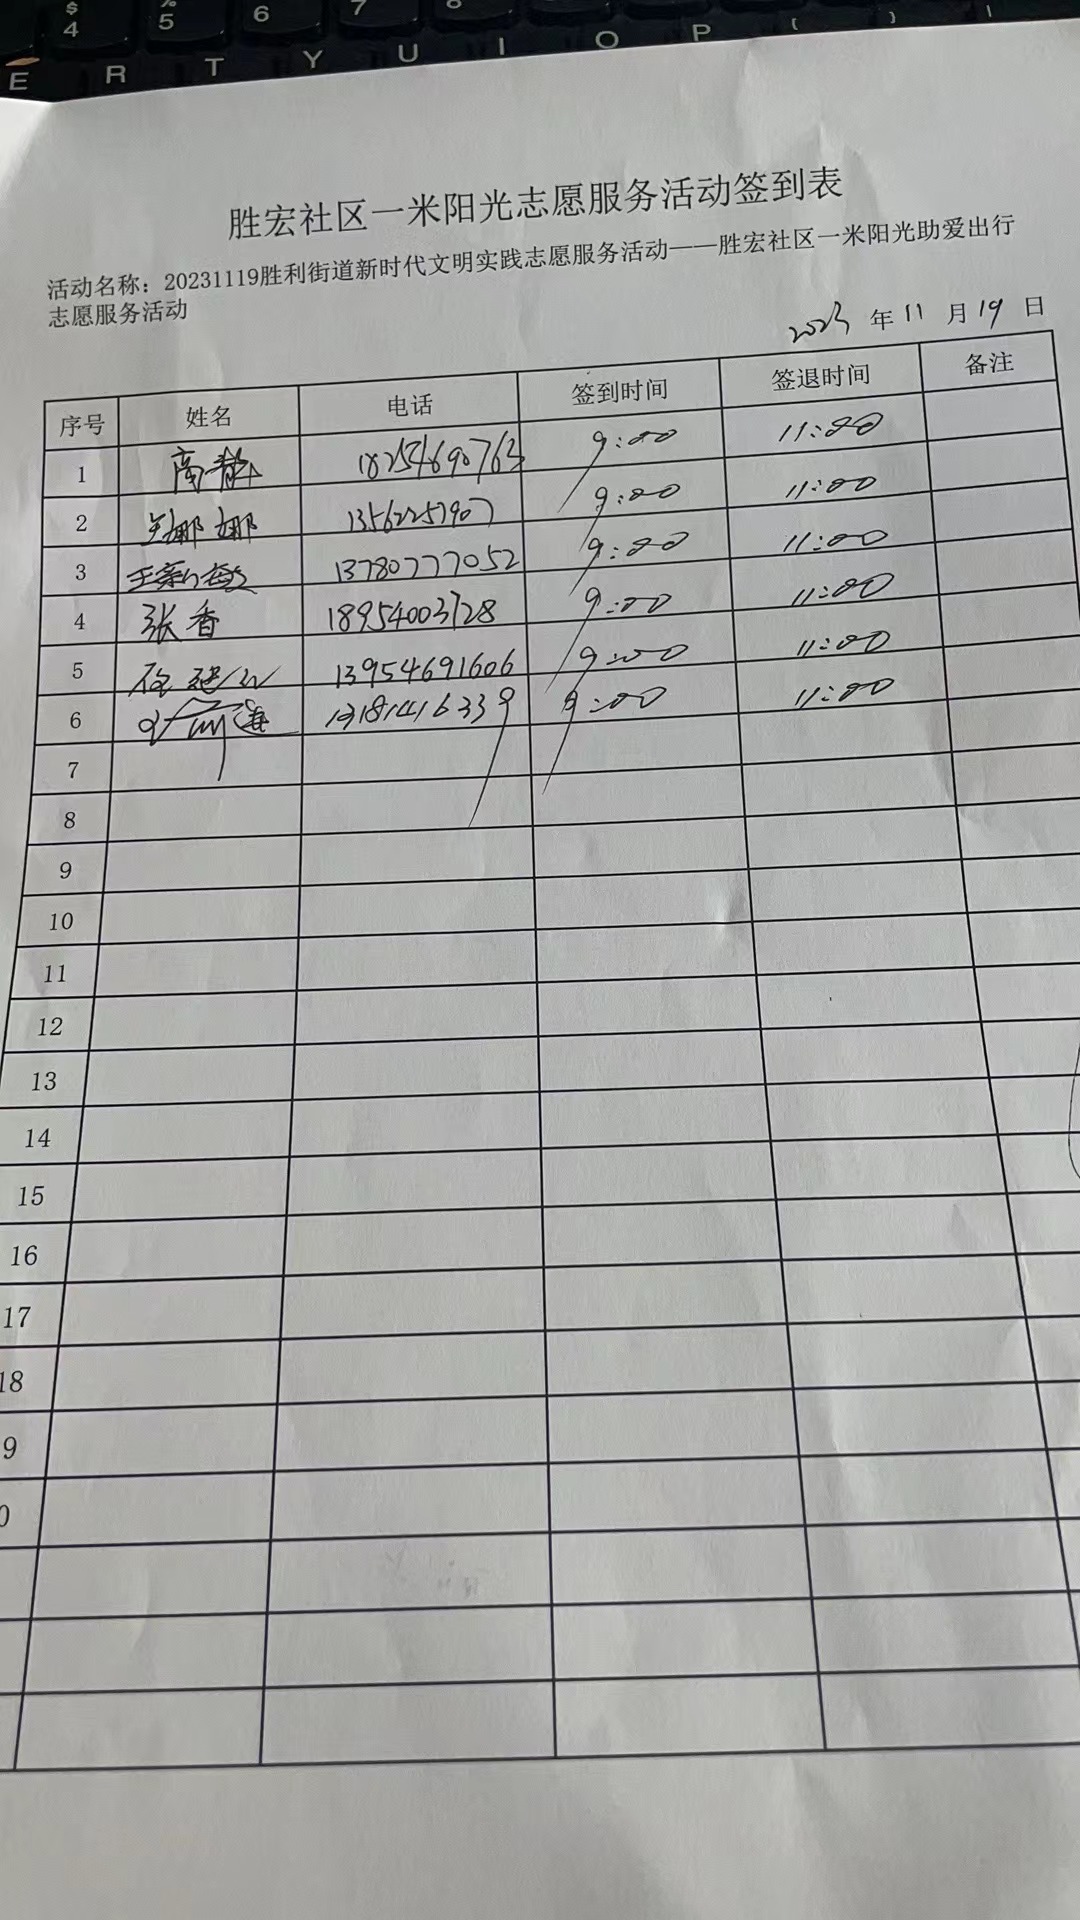 $ % 6 7 8
4 5
E R T Y U I O P { }
胜宏社区一米阳光志愿服务活动签到表
活动名称：20231119胜利街道新时代文明实践志愿服务活动——胜宏社区一米阳光助爱出行
志愿服务活动
2023 年 11 月 19 日
序号 姓名 电话 签到时间 签退时间 备注
1 高静 18254690763 9:00 11:00
2 娜娜 13562257907 9:00 11:00
3 王 13780777052 9:00 11:00
4 张香 18954003728 9:00 11:00
5 13954691606 9:00 11:00
6 13181416339 9:00 11:00
7
8
9
10
11
12
13
14
15
16
17
18
9
0